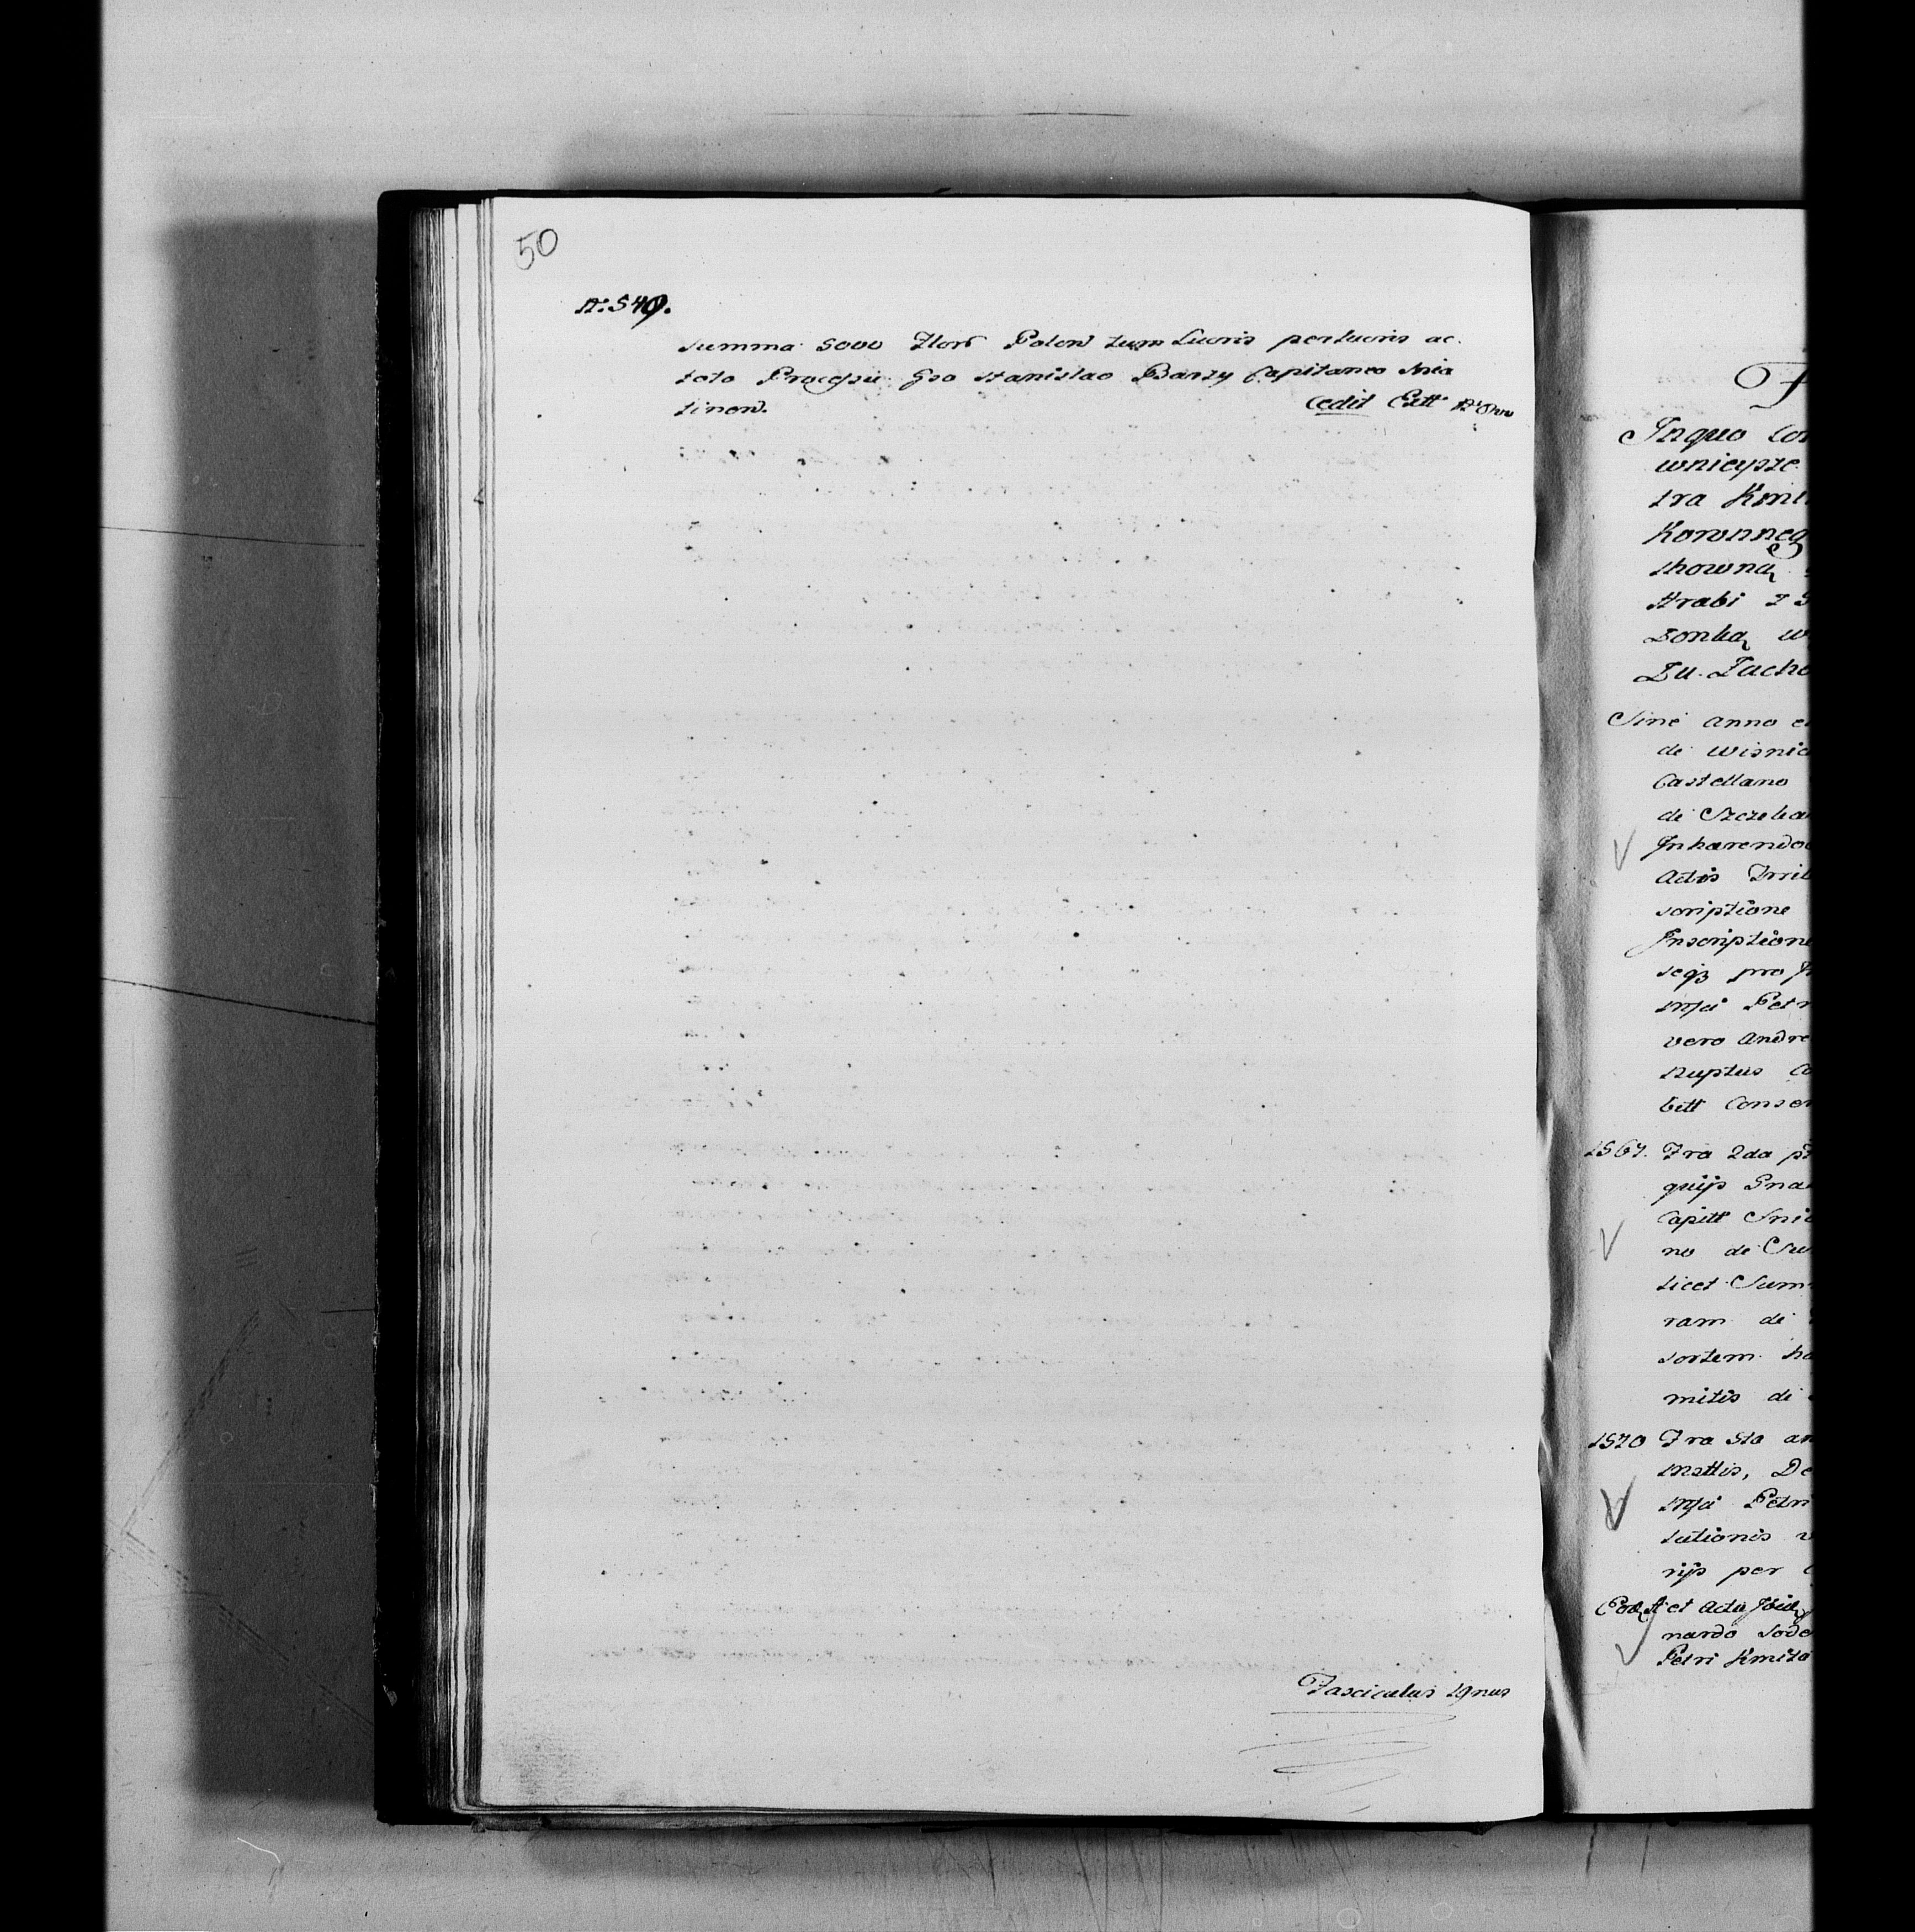 50
N: 549.
Summa 5000 Flor Polon tum Lucris perlucris ac
toto Processu Gso Stanislao Barzy Capitaneo Snia
tinen.
Cedit Extt
Fasciculus 19nus
Inquo Con
wnieysze
tra Kmi
Koronneg
Hrabi z
Sonką w
Du. Lach
Sine anno e
de Wisnic
Castellano
de Szczeka
Inhærendo
Actis Trib
scriptione
Inscriptione
seqz pro
Petr
vero Andre
Nuptus Co
bitt Conso
1567. Fra 2da p
quijs Gna
Capitt Snia
no de Su
licet Sum
ram de
sortem ha
mitis de
1570 Fra 5ta an
Petri
lutionis v
rijs per
et Actu
nardo Sode
Petri Kmita